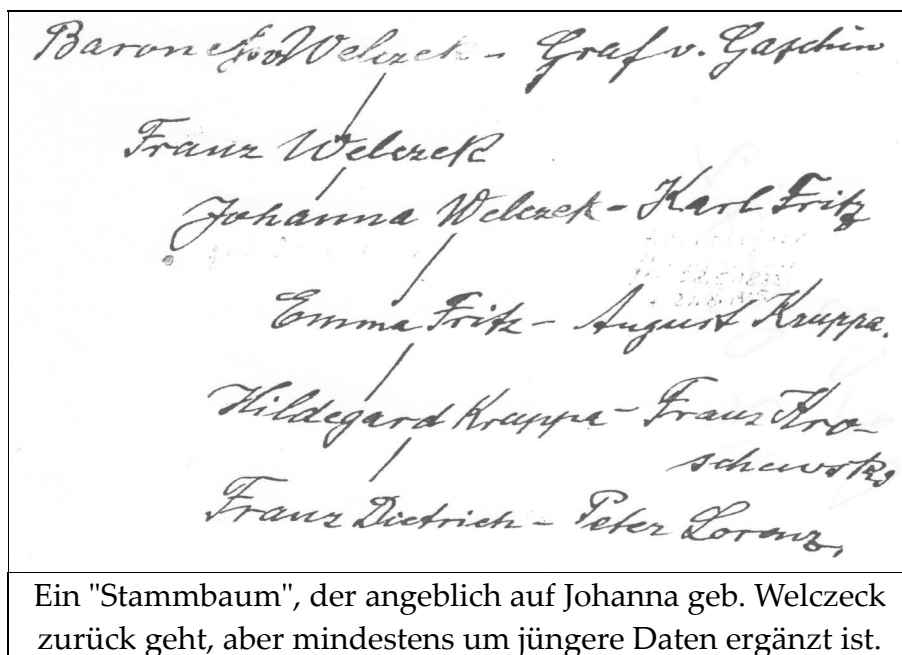 Baronesse v Welczek - Graf v. Gaschin
Franz Welczek
Johanna Welczek - Karl Fritz
Emma Fritz - August Kruppa.
Hildegard Kruppa - Franz Kro-
schewski
Franz Dietrich - Peter Lorenz,
Ein "Stammbaum", der angeblich auf Johanna geb. Welczeck
zurück geht, aber mindestens um jüngere Daten ergänzt ist.